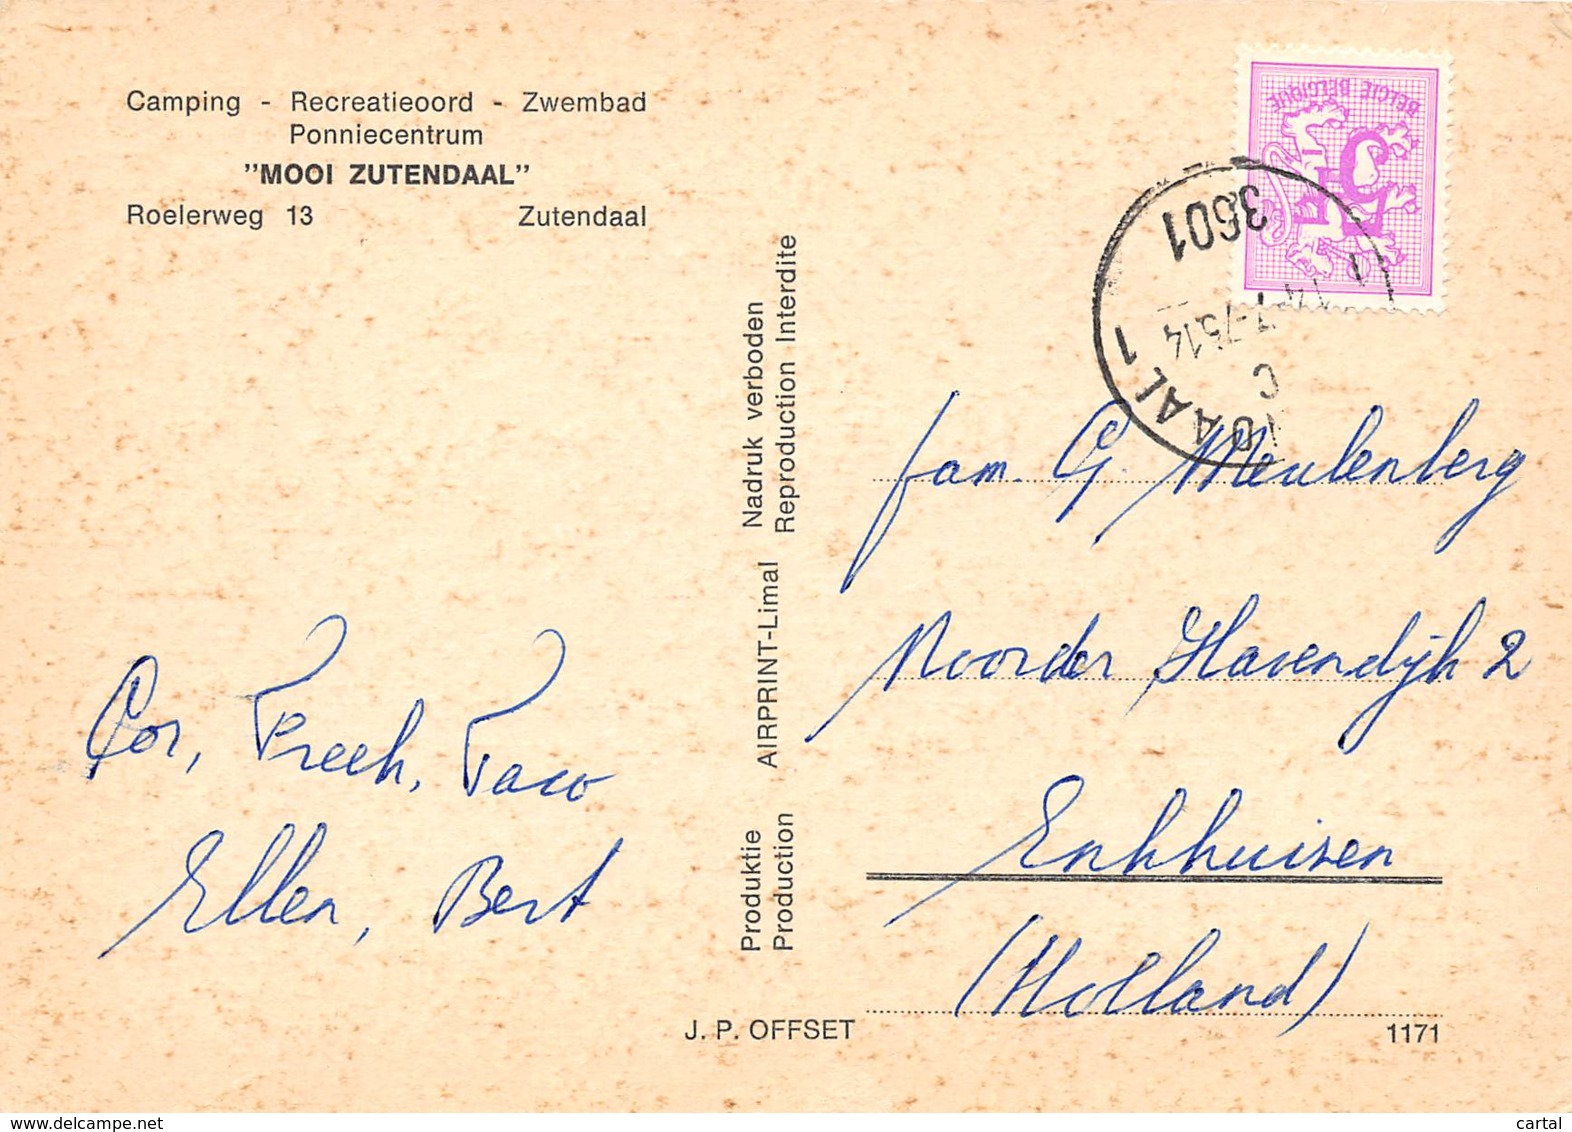 Camping - Recreatieoord - Zwembad
Ponniecentrum
"MOOI ZUTENDAAL"
Roelerweg 13 Zutendaal
Cor, Preeh, Taco
Ellen, Bert
Produktie AIRPRINT-Limal Nadruk verboden
Production Reproduction Interdite
J. P. OFFSET
BELGIE BELGIQUE
3601
DAAL 1
fam. G. Meulenberg
Noorder Havendijk 2
Enkhuizen
(Holland)
1171
cartal